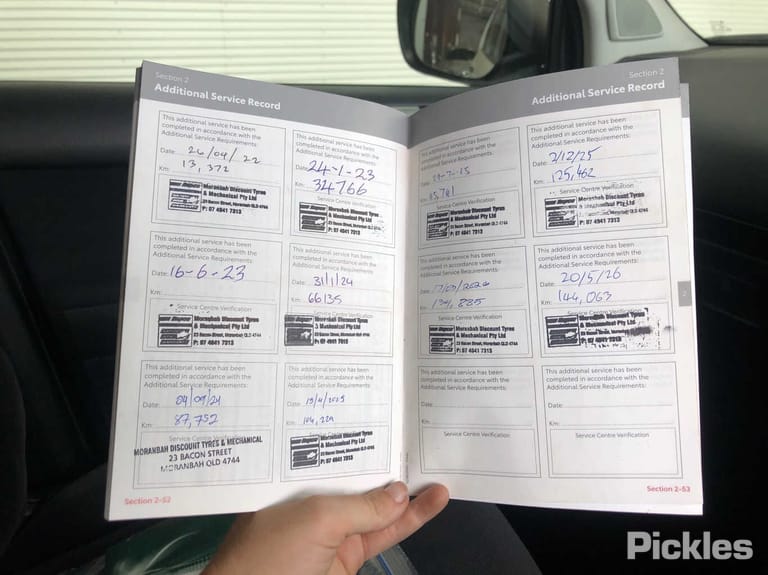 Section 2
Additional Service Record
This additional service has been
completed in accordance with the
Additional Service Requirements:
Date: 26/04/22
Km: 13,372
Moranbah Discount Tyres
& Mechanical Pty Ltd
23 Bacon Street, Moranbah QLD 4744
P: 07 4941 7313
This additional service has been
completed in accordance with the
Additional Service Requirements:
Date: 24-1-23
Km: 34766
Service Centre Verification
Moranbah Discount Tyres
& Mechanical Pty Ltd
23 Bacon Street, Moranbah QLD 4744
P: 07 4941 7313
This additional service has been
completed in accordance with the
Additional Service Requirements:
Date: 16-6-23
Km:
Service Centre Verification
Moranbah Discount Tyres
& Mechanical Pty Ltd
23 Bacon Street, Moranbah QLD 4744
P: 07 4941 7313
This additional service has been
completed in accordance with the
Additional Service Requirements:
Date: 31/1/24
Km: 66135
Service Centre Verification
Moranbah Discount Tyres
& Mechanical Pty Ltd
23 Bacon Street, Moranbah QLD 4744
P: 07 4941 7313
This additional service has been
completed in accordance with the
Additional Service Requirements:
Date: 04/09/24
Km: 87,752
Service Centre Verification
MORANBAH DISCOUNT TYRES & MECHANICAL
23 BACON STREET
MORANBAH QLD 4744
This additional service has been
completed in accordance with the
Additional Service Requirements:
Date:
Km:
Service Centre
Moranbah Discount Tyres
& Mechanical Pty Ltd
23 Bacon Street, Moranbah QLD 4744
P: 07 4941 7313
Section 2-53
Section 2
Additional Service Record
This additional service has been
completed in accordance with the
Additional Service Requirements:
Date:
Km:
Service Centre Verification
Moranbah Discount Tyres
& Mechanical Pty Ltd
23 Bacon Street, Moranbah QLD 4744
P: 07 4941 7313
This additional service has been
completed in accordance with the
Additional Service Requirements:
Date: 2/12/25
Km: 125,462
Service Centre Verification
Moranbah Discount Tyres
& Mechanical Pty Ltd
23 Bacon Street, Moranbah QLD 4744
P: 07 4941 7313
This additional service has been
completed in accordance with the
Additional Service Requirements:
Date:
Km: 134,885
Service Centre Verification
Moranbah Discount Tyres
& Mechanical Pty Ltd
23 Bacon Street, Moranbah QLD 4744
P: 07 4941 7313
This additional service has been
completed in accordance with the
Additional Service Requirements:
Date: 20/5/26
Km: 144,063
Service Centre Verification
Moranbah Discount Tyres
& Mechanical Pty Ltd
23 Bacon Street, Moranbah QLD 4744
P: 07 4941 7313
This additional service has been
completed in accordance with the
Additional Service Requirements:
Date:
Km:
Service Centre Verification
This additional service has been
completed in accordance with the
Additional Service Requirements:
Date:
Km:
Service Centre Verification
Section 2-53
Pickles